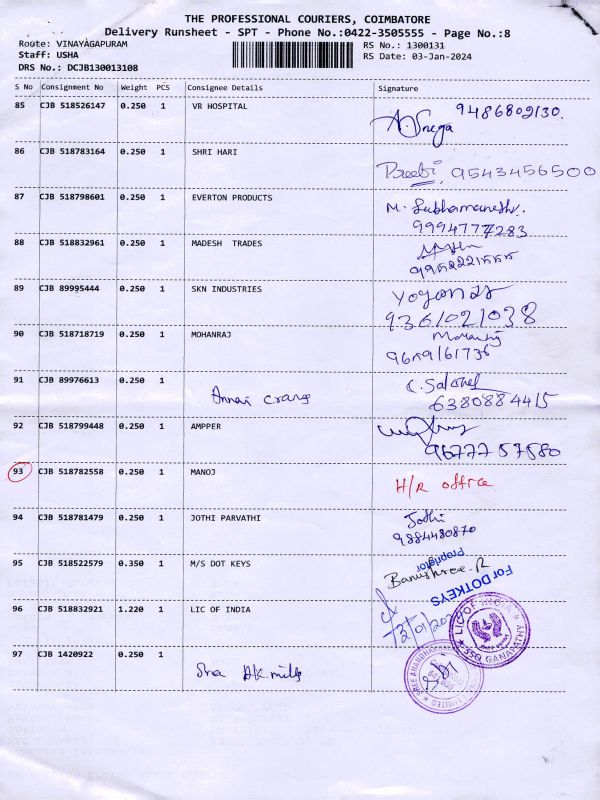 THE PROFESSIONAL COURIERS, COIMBATORE
Delivery Runsheet - SPT - Phone No.:0422-3505555 - Page No.:8
Route: VINAYAGAPURAM RS No.: 1300131
Staff: USHA RS Date: 03-Jan-2024
DRS No.: DCJB130013108
S No Consignment No Weight PCS Consignee Details Signature
85 CJB 518526147 0.250 1 VR HOSPITAL 9486802130.
86 CJB 518783164 0.250 1 SHRI HARI Preethi 9543456500
87 CJB 518798601 0.250 1 EVERTON PRODUCTS
9994777283
88 CJB 518832961 0.250 1 MADESH TRADES
89 CJB 89995444 0.250 1 SKN INDUSTRIES
9361021038
90 CJB 518718719 0.250 1 MOHANRAJ Mohanraj
9659161736
91 CJB 89976613 0.250 1 Annai
6380884415
92 CJB 518799448 0.250 1 AMPPER
9677757580
93 CJB 518782558 0.250 1 MANOJ H/R office
94 CJB 518781479 0.250 1 JOTHI PARVATHI Jothi
9884480870
95 CJB 518522579 0.350 1 M/S DOT KEYS Banushree.R
For DOTKEYS
Proprietor
96 CJB 518832921 1.220 1 LIC OF INDIA
LIC OF INDIA
SSO GANAPATHY
97 CJB 1420922 0.250 1 Sna Ak mills